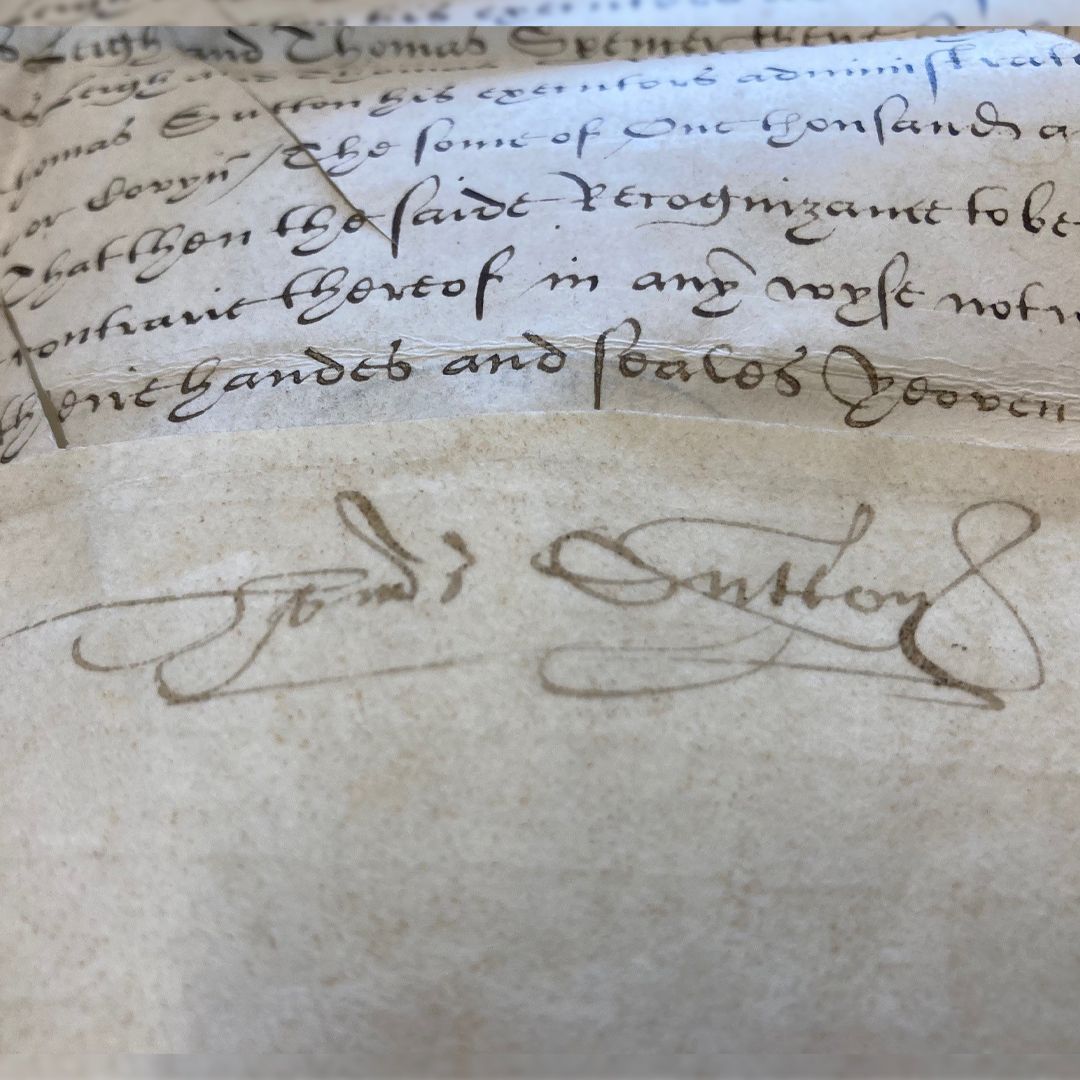 Leigh and Thomas Spencer there
Thomas Sutton his executors administrato
or covyn The some of One thousand a
That then the saide Recognizance to be
contrarie thereof in any wyse not
theire handes and seales Yeoven
Sutton